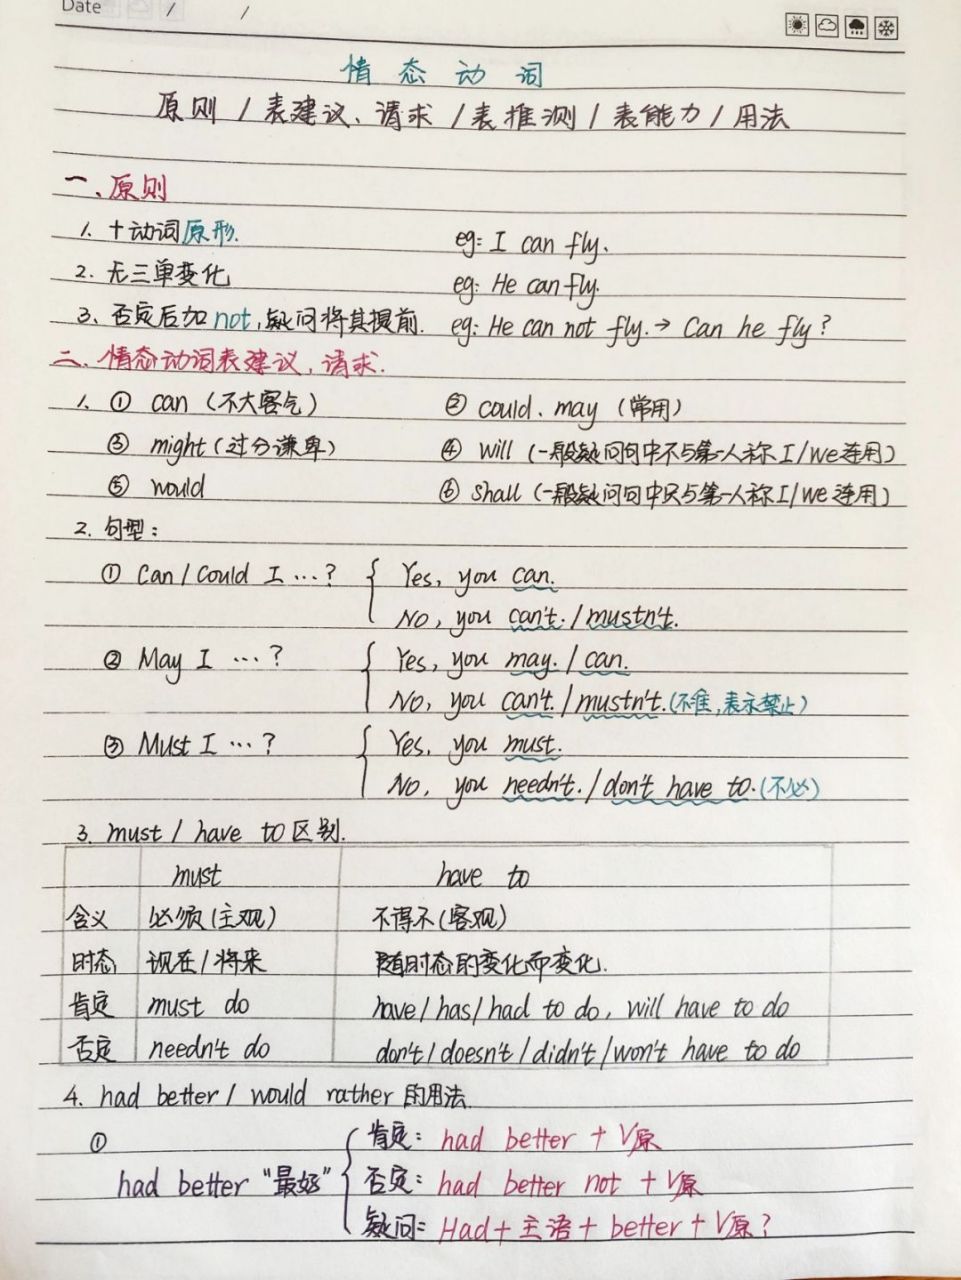 Date / /
情态动词
原则 / 表建议、请求 / 表推测 / 表能力 / 用法
一、原则
1. 十动词原形. eg: I can fly.
2. 无三单变化 eg: He can fly.
3、否定后加not,疑问将其提前. eg: He can not fly. → Can he fly?
二、情态动词表建议、请求.
1. ① can (不大客气) ② could、may (常用)
③ might (过分谦卑) ④ will (一般疑问句中不与第一人称I/we连用)
⑤ would ⑥ shall (一般疑问句中只与第一人称I/we连用)
2. 句型:
① Can/Could I …? { Yes, you can.
No, you can't. / mustn't.
② May I …? { Yes, you may. / can.
No, you can't. / mustn't. (不准,表示禁止)
③ Must I …? { Yes, you must.
No, you needn't. / don't have to. (不必)
3. must / have to 区别.
must have to
含义 必须(主观) 不得不(客观)
时态 现在/将来 随时态的变化而变化.
肯定 must do have/has/had to do, will have to do
否定 needn't do don't/doesn't/didn't/won't have to do
4. had better / would rather 的用法
①
肯定: had better + V原
had better "最好" { 否定: had better not + V原
疑问: Had + 主语 + better + V原?